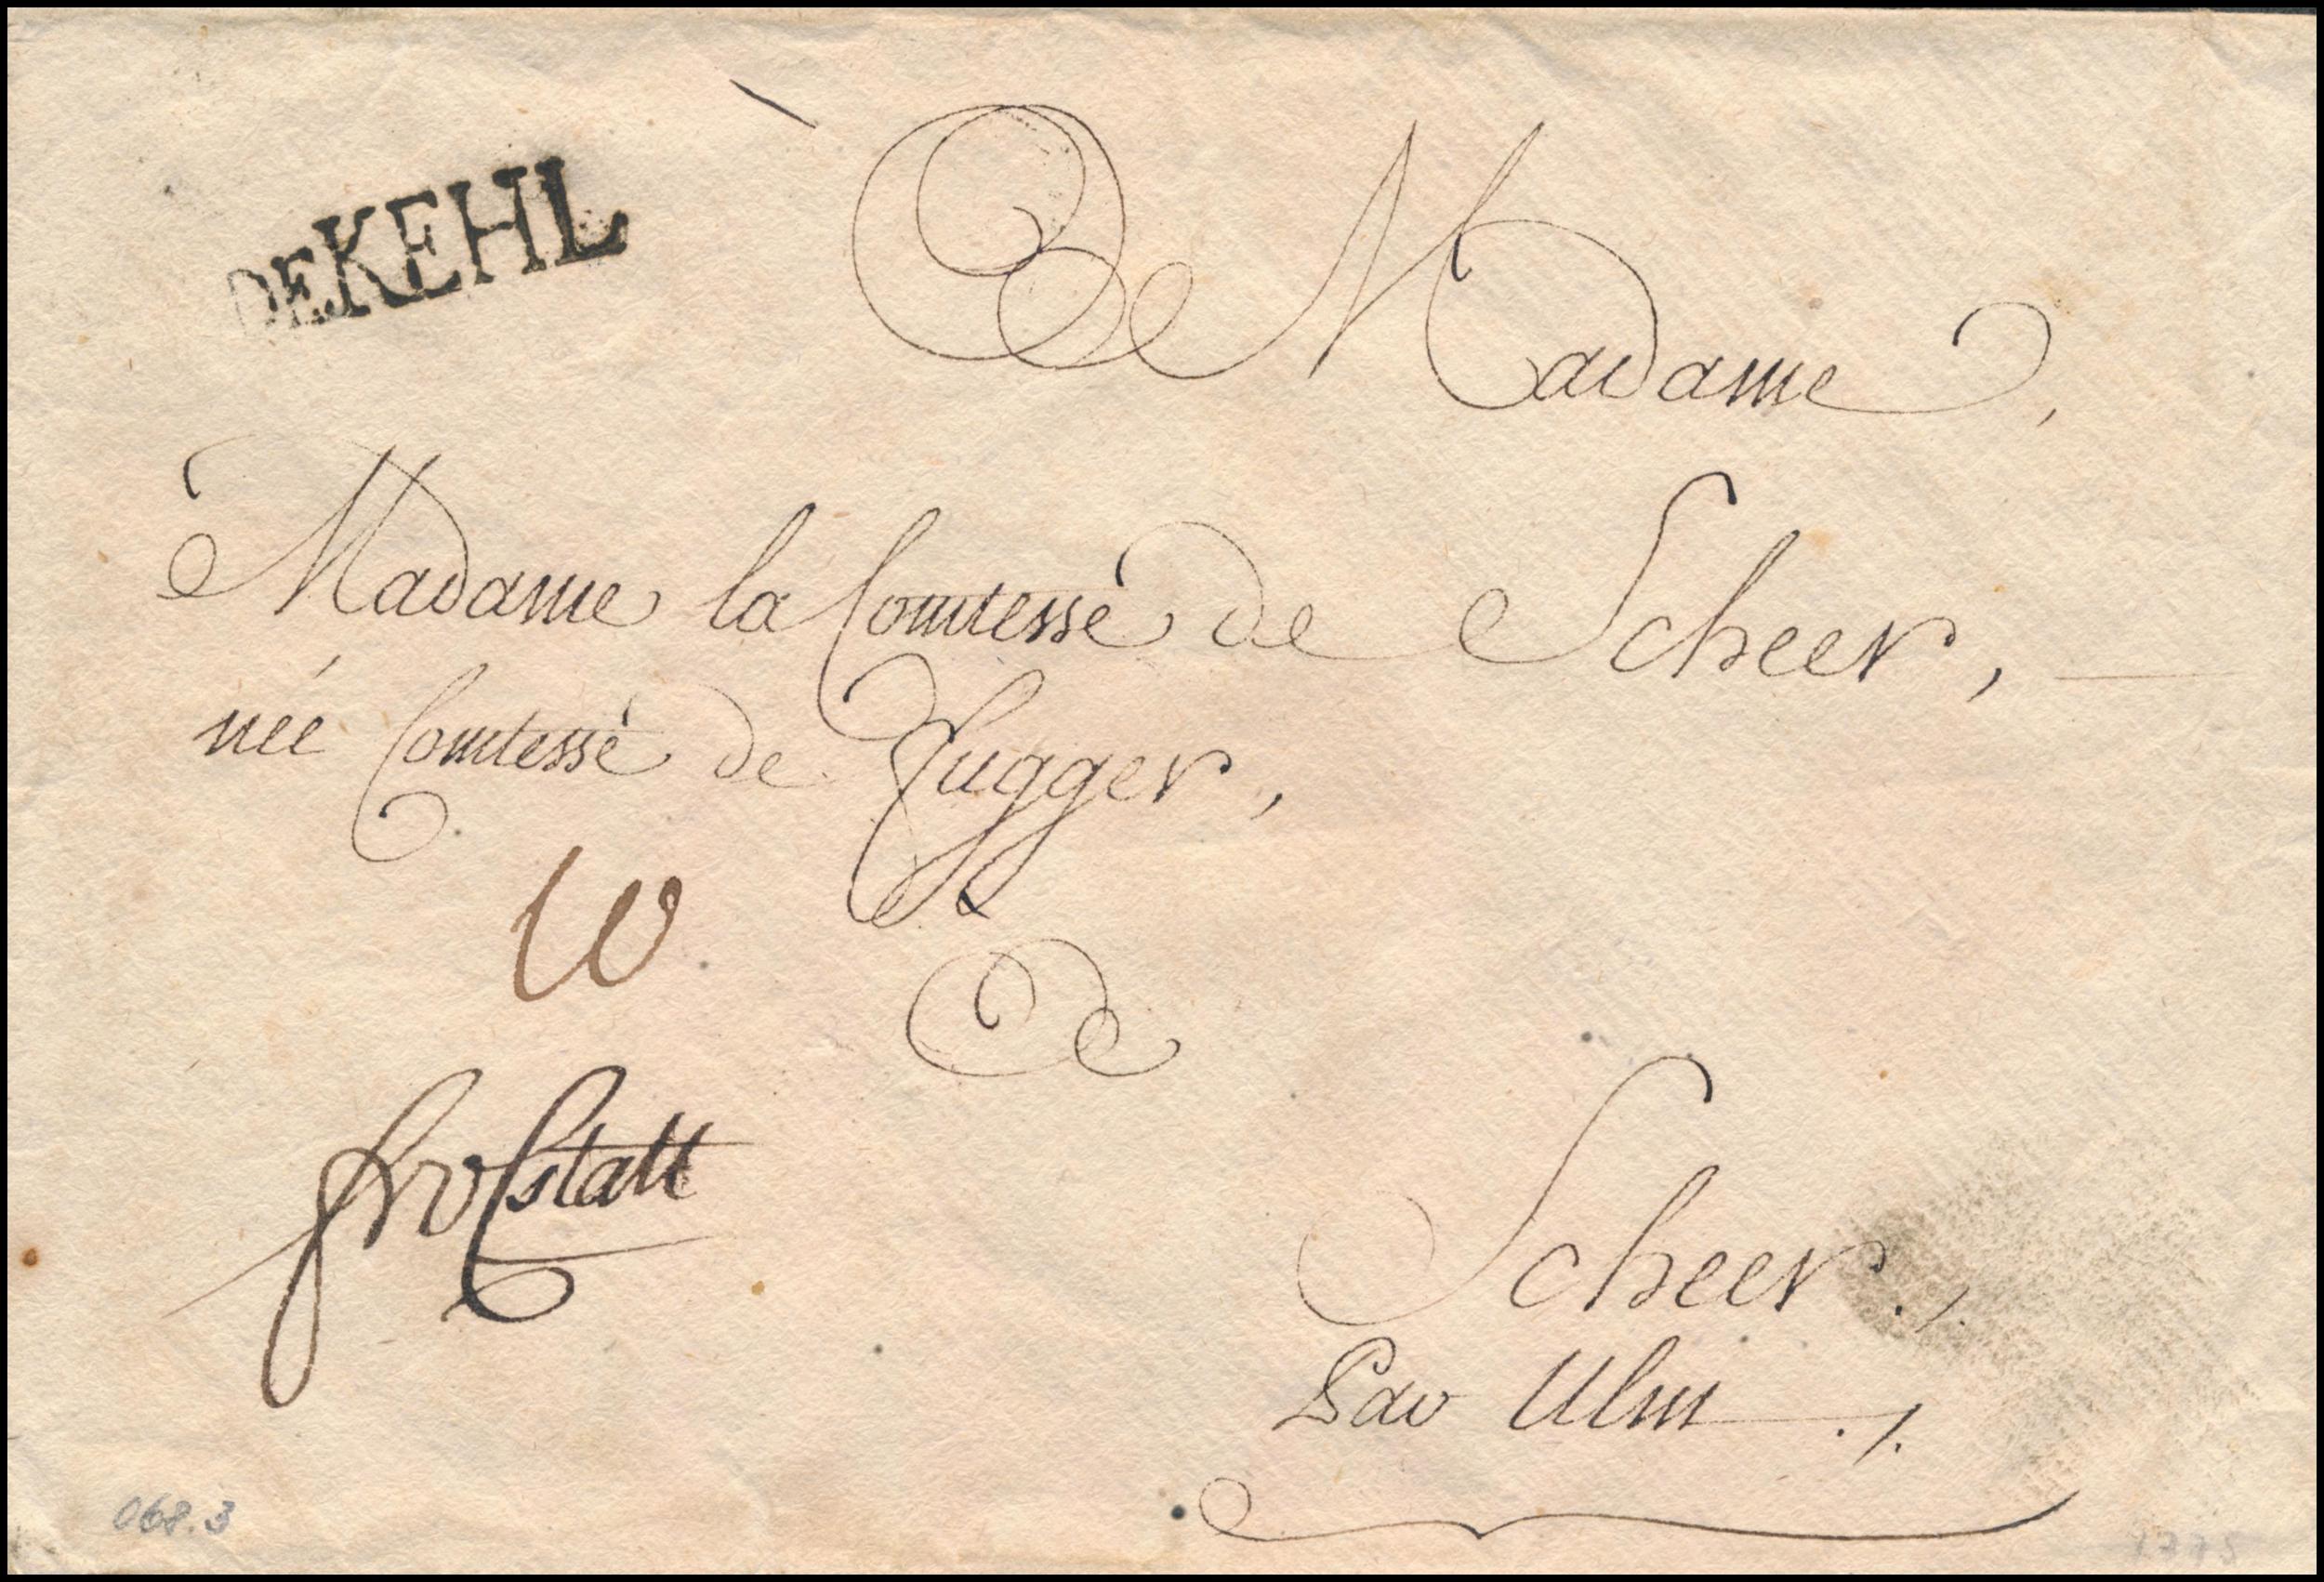 DE KEHL
De Madame,
Madame la Comtesse de Scheer,
née Comtesse de Fugger,
10
Scheer ./.
Par Ulm ./.
068.3
1775